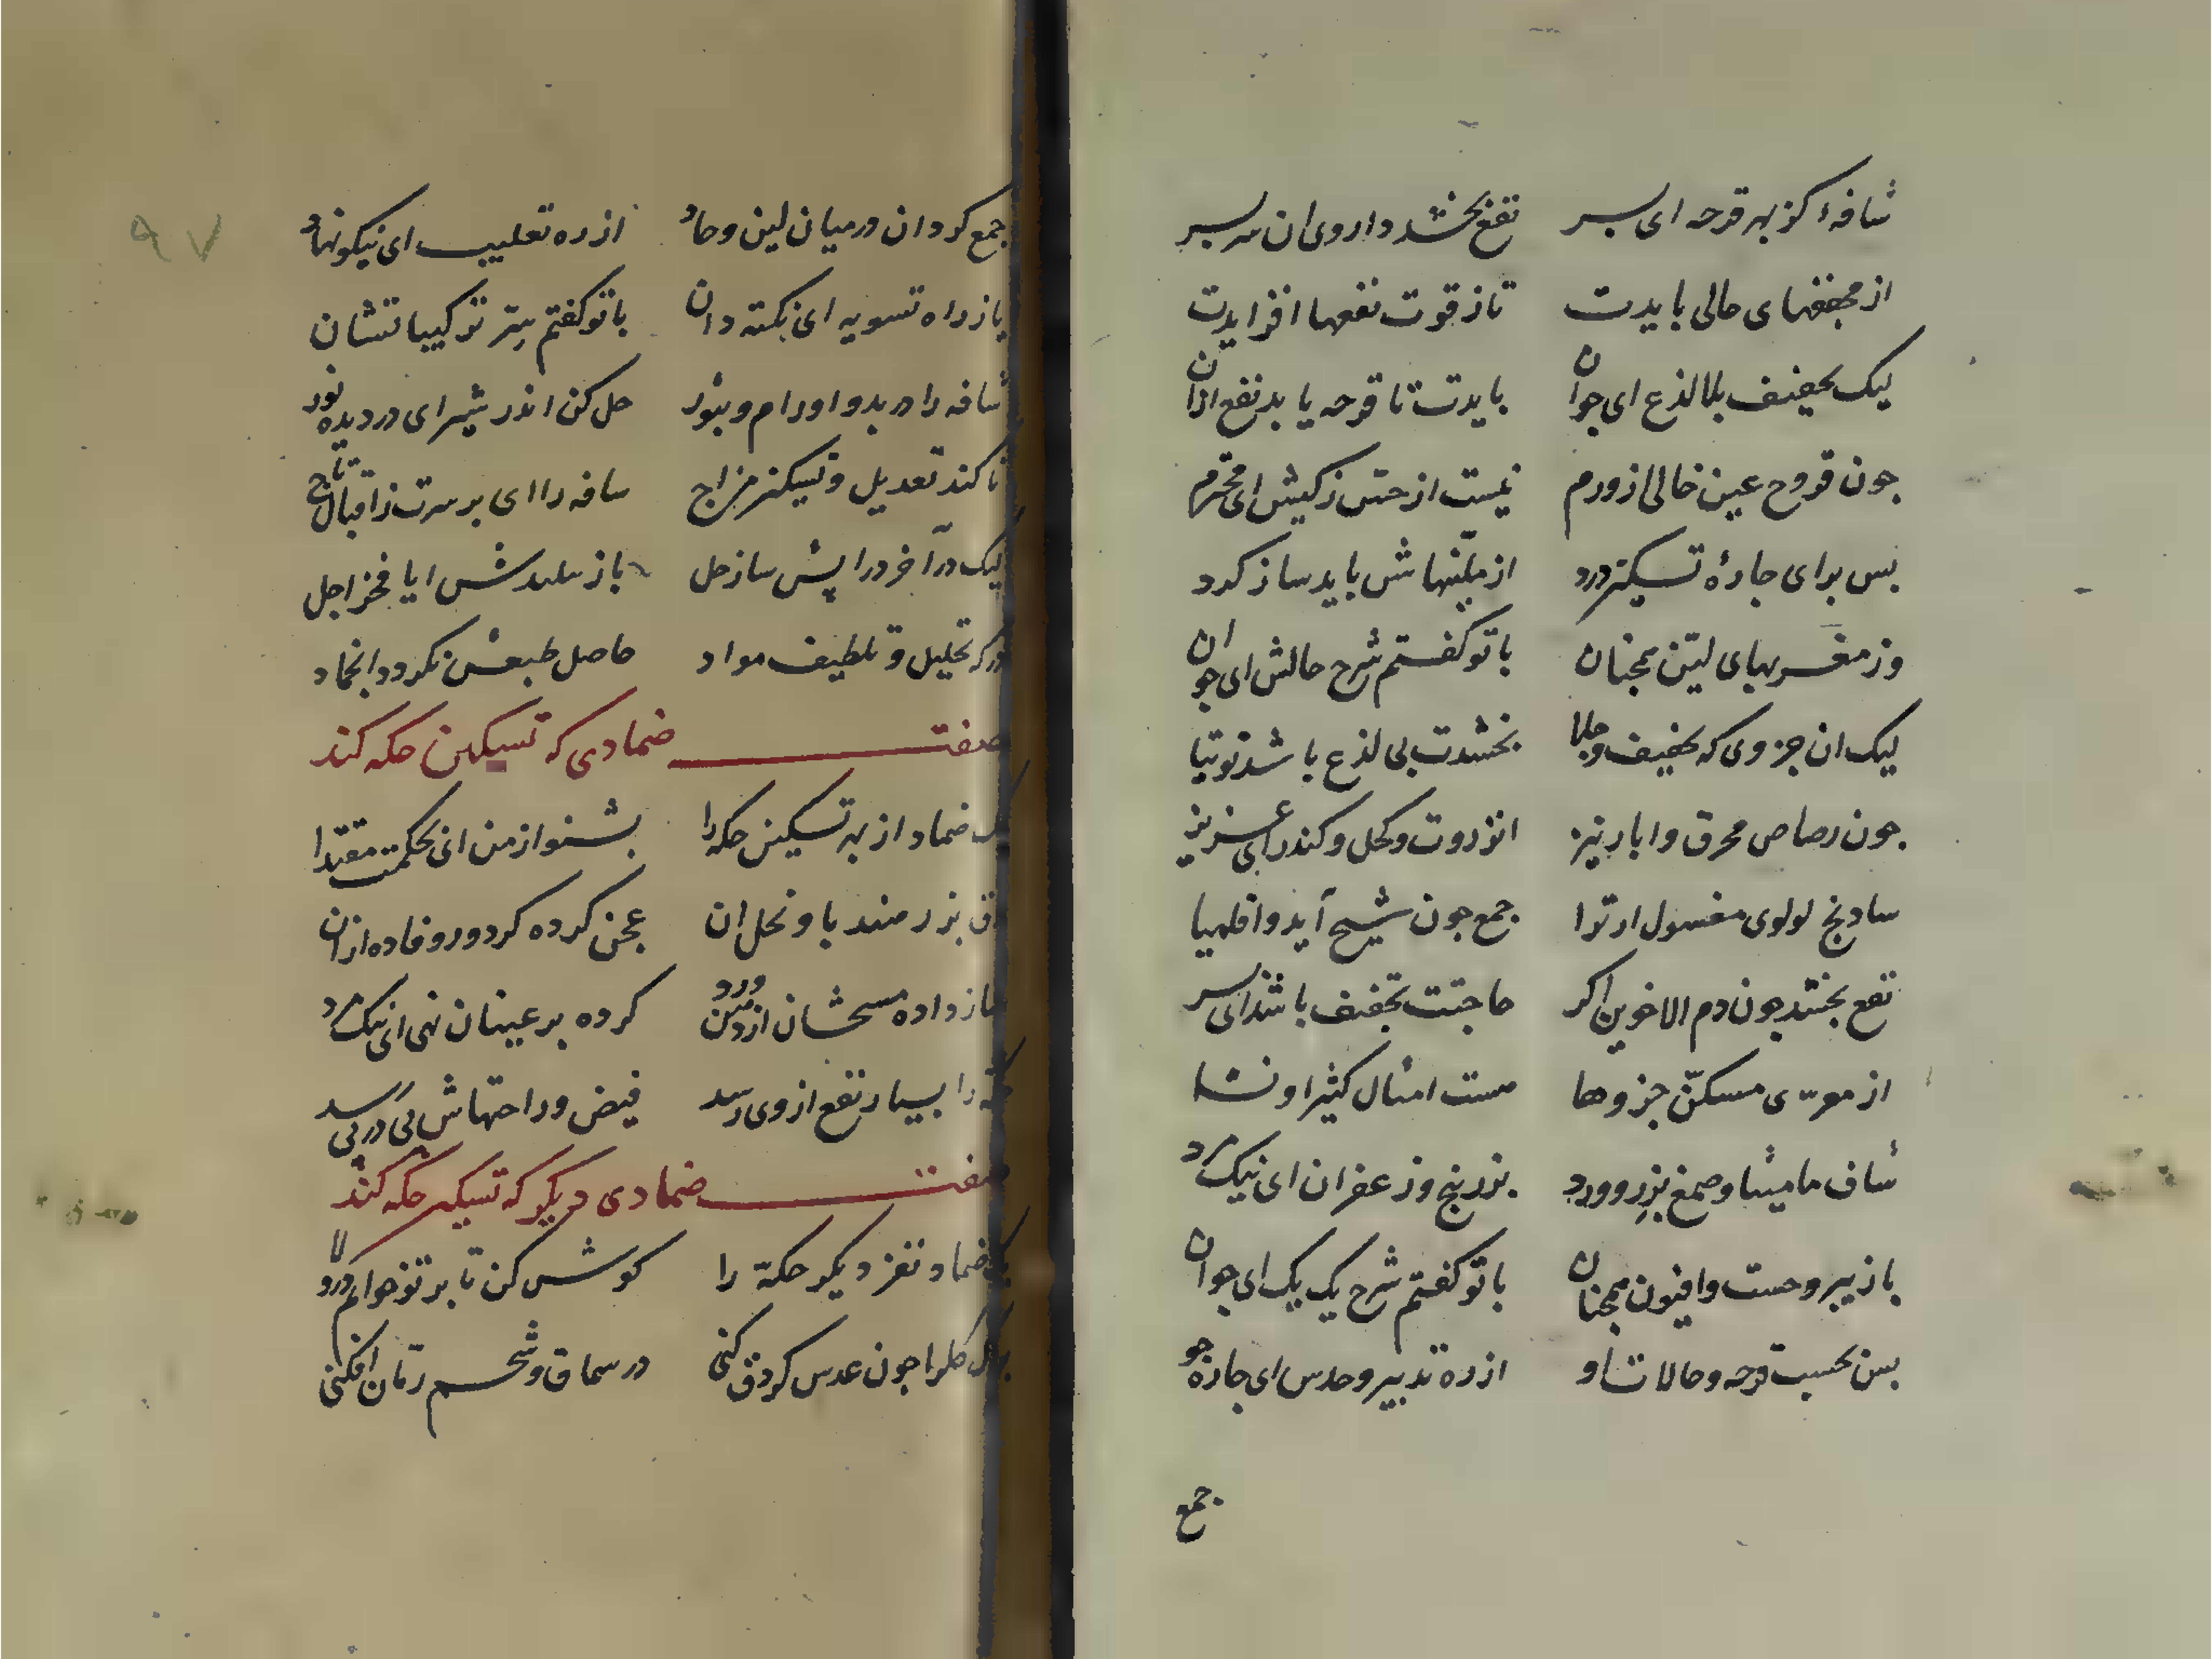 شافهٔ کز بهر قرحه ای پسر نفع بخشد داروی ان سر بسر
از مجففهای حالی بایدت تاز قوت نفعها افزایدت
لیک تجفیف بلالذع ای جوان بایدت تا قرحه یابد نفع ازان
جون قروح عین خالی از ورم نیست از حتس زکیش ای محترم
بس برای جارهٔ تسکین درد از ملینهاش باید ساز کرد
وز مغریهای لین همجنان با تو کفتم شرح حالش ای جوان
لیک ان جزوی که تجفیف و جلا بخشدت بی لذع باشد توتیا
جون رصاص محرق و ابار نیز انزروت و کحل و کندر ای عزیز
سادنج لولوی مغسول ار ترا جمع جون شیح آید و اقلمیا
نفع بخشد جون دم الاخوین اکر حاجتت تجفیف باشد ای پسر
از مسکن جزوها هست امثال کثیرا و نشا
شاف مامیثا و صمغ بزر و ورد بزر بنج و زعفران ای نیک مرد
باز یبروحست و افیون همجنان با تو کفتم شرح یک یک ای جوان
بس بحسب قرحه و حالات او از ره تدبیر و حدس ای جاره جو
جمع
۹۷
جمع کردان درمیان لین و حاد از ره تغلیب ای نیکو نهاد
یا ز راه تسویه ای نکته دان با تو کفتم سِرّ ترکیباتشان
شافه را در بدو اورام و بثور حل کن اندر شیر ای در دیده نور
تا کند تعدیل و تسکین مزاج سافه را ای بر سرت ز اقبال تاج
لیک در آخر درا پش ساز حل باز ایا فخر اجل
ور که تحلیل و تلطیف مواد حاصل طبعش نکردد انجماد
صفت ضمادی که تسکین حکه کند
یک ضماد از بهر تسکین حکه را بشنو از من ای بحکمت مقتدا
بزر هندبا و نحل ان عجن کرده کرد و رفاده ازان
داده مسحشان از دهن ورد کرده بر عینان نهی ای نیک مرد
حکه را بسیار نفع از وی رسد فیض و راحتهاش پی در پی رسد
صفت ضمادی دیکر که تسکین حکه کند
یک ضماد نغز دیکر حکه را کوش کن تا بر تو خوانم در ولا
جون عدس کر دق کنی در سماق و شحم رمان افکنی